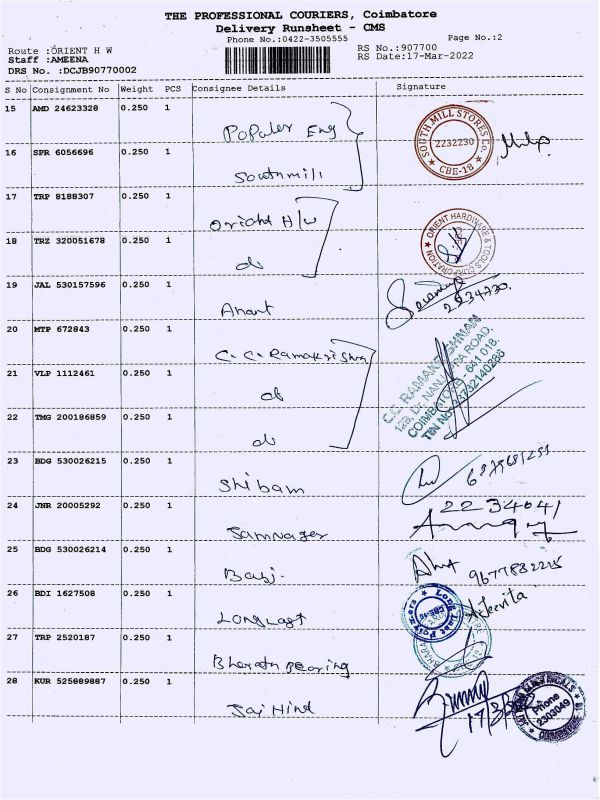 THE PROFESSIONAL COURIERS, Coimbatore
Delivery Runsheet - CMS
Phone No.:0422-3505555
Page No.:2
Route :ORIENT H W
RS No.:907700
Staff :AMEENA
RS Date:17-Mar-2022
DRS No. :DCJB90770002
S No Consignment No Weight PCS Consignee Details Signature
15 AMD 24623328 0.250 1 Populer Eng
SOUTH MILL STORES Co. 2232230 CBE-18
16 SPR 6056696 0.250 1 Southmill
17 TRP 8188307 0.250 1 Orient H/w
ORIENT HARDWARE & TOOLS CORPORATION
18 TRZ 320051678 0.250 1 do
19 JAL 530157596 0.250 1 Anant
2234730.
20 MTP 672843 0.250 1 C.C. Ramakrishna
C.C. RAMAKRISHNAN
128, Dr. NANJAPPA ROAD,
COIMBATORE - 641 018.
21 VLP 1112461 0.250 1 do
22 TMG 200186859 0.250 1 do
23 BDG 530026215 0.250 1 Shibam
24 JNR 20005292 0.250 1 Jamnager
2234041
25 BDG 530026214 0.250 1
9677832215
26 BDI 1627508 0.250 1 Longlast
Jeevita
27 TRP 2520187 0.250 1 Bharath Bearing
28 KUR 525889887 0.250 1 Jai Hind
Phone 2303049